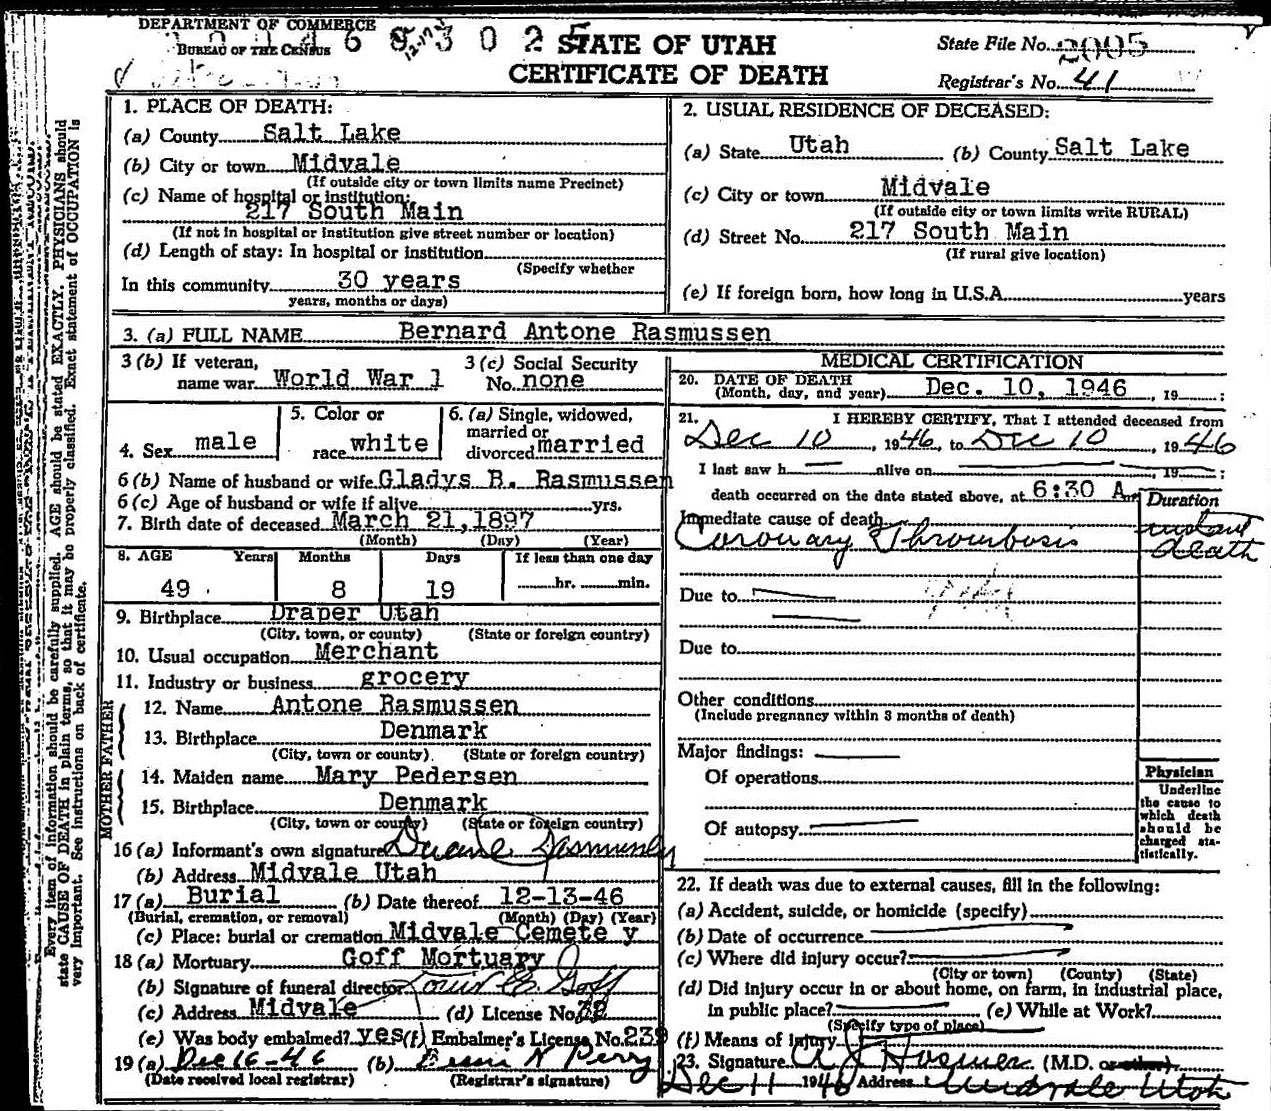 DEPARTMENT OF COMMERCE
BUREAU OF THE CENSUS
STATE OF UTAH
CERTIFICATE OF DEATH
State File No. 2005
Registrar's No. 41
Every item of information should be carefully supplied. AGE should be stated EXACTLY. PHYSICIANS should
state CAUSE OF DEATH in plain terms, so that it may be properly classified. Exact statement of OCCUPATION is
very important. See instructions on back of certificate.
1. PLACE OF DEATH:
(a) County Salt Lake
(b) City or town Midvale
(If outside city or town limits name Precinct)
(c) Name of hospital or institution:
217 South Main
(If not in hospital or institution give street number or location)
(d) Length of stay: In hospital or institution
(Specify whether
In this community 30 years
years, months or days)
2. USUAL RESIDENCE OF DECEASED:
(a) State Utah (b) County Salt Lake
(c) City or town Midvale
(If outside city or town limits write RURAL)
(d) Street No. 217 South Main
(If rural give location)
(e) If foreign born, how long in U.S.A. years
3. (a) FULL NAME Bernard Antone Rasmussen
3 (b) If veteran, name war World War 1
3 (c) Social Security No. none
4. Sex male
5. Color or race white
6. (a) Single, widowed, married or divorced married
6 (b) Name of husband or wife Gladys B. Rasmussen
6 (c) Age of husband or wife if alive yrs.
7. Birth date of deceased March 21, 1897
(Month) (Day) (Year)
8. AGE Years Months Days If less than one day
49 8 19 hr. min.
9. Birthplace Draper Utah
(City, town, or county) (State or foreign country)
10. Usual occupation Merchant
11. Industry or business grocery
FATHER
12. Name Antone Rasmussen
13. Birthplace Denmark
(City, town or county) (State or foreign country)
MOTHER
14. Maiden name Mary Pedersen
15. Birthplace Denmark
(City, town or county) (State or foreign country)
16 (a) Informant's own signature Duane Rasmussen
(b) Address Midvale Utah
17 (a) Burial (b) Date thereof 12-13-46
(Burial, cremation, or removal) (Month) (Day) (Year)
(c) Place: burial or cremation Midvale Cemete y
18 (a) Mortuary Goff Mortuary
(b) Signature of funeral director Goff
(c) Address Midvale (d) License No.
(e) Was body embalmed? yes (f) Embalmer's License No. 239
19 (a) Dec 16-46 (b) N Perry
(Date received local registrar) (Registrar's signature)
MEDICAL CERTIFICATION
20. DATE OF DEATH
(Month, day, and year) Dec. 10, 1946, 19 ;
21. I HEREBY CERTIFY, That I attended deceased from
Dec 10, 1946, to Dec 10, 1946
I last saw h alive on , 19 ;
death occurred on the date stated above, at 6:30 A m
Duration
Immediate cause of death
Coronary Thrombosis
instant
death
Due to
Due to
Other conditions
(Include pregnancy within 3 months of death)
Major findings:
Of operations
Of autopsy
Physician
Underline
the cause to
which death
should be
charged sta-
tistically.
22. If death was due to external causes, fill in the following:
(a) Accident, suicide, or homicide (specify)
(b) Date of occurrence
(c) Where did injury occur?
(City or town) (County) (State)
(d) Did injury occur in or about home, on farm, in industrial place,
in public place? (e) While at Work?
(Specify type of place)
(f) Means of Injury
23. Signature Hosmer (M.D. or other)
Dec 11 1946 Address Midvale Utah